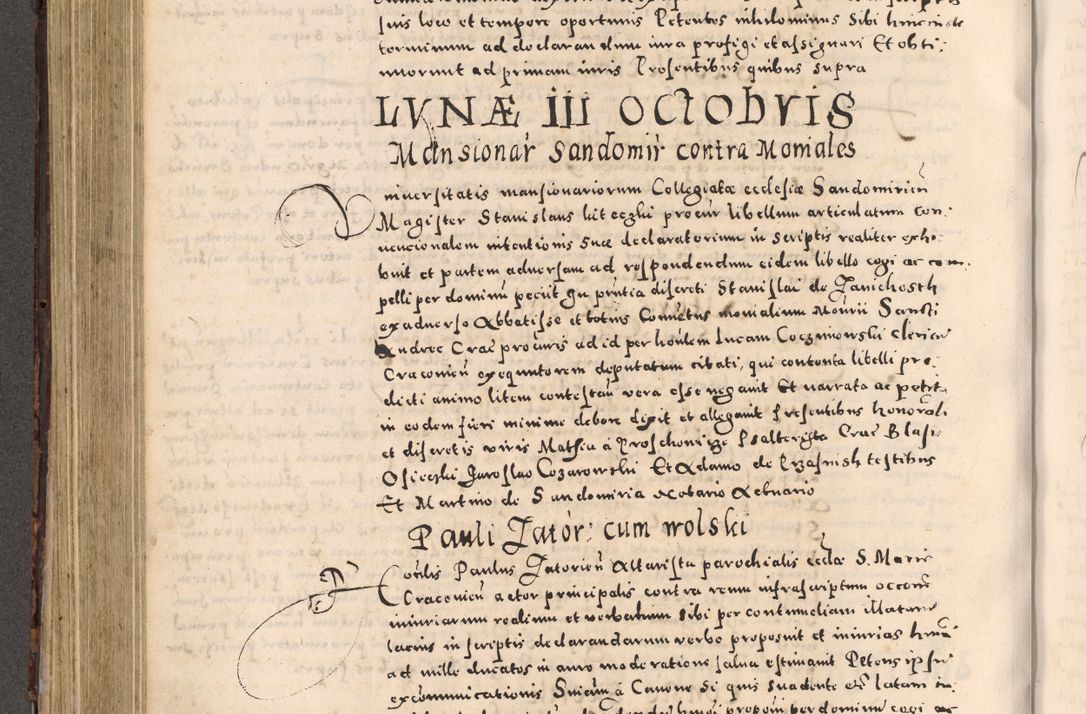 suis loco et tempore oportunis Petentes nihilominus sibi
terminum ad declarandum iura prefigi et assignari Et obti:
nuerunt ad primam iuris Presentibus quibus supra
LVNÆ III OCTOBVIS
Mansionar Sandomir contra Moniales
Vniuersitatis mansionariorum Collegiatæ ecclesiæ Sandomirien
Magister Stanislaus procur libellum articulatum con:
uencionalem intentionis suæ declaratorium in scriptis realiter exhi:
buit et partem aduersam ad respondendum eidem libello cogi ac com:
pelli per dominum peciit In pñtia discreti Stanislai de Zauichosth
ex aduerso Abbatisse et totius Conuetus monialium Mourii Sancti
Andree Crac procuris ad id per honlem Lucam Coczmiowski clericu
Cracouien exequutorem deputatum citati, qui contenta libelli pre:
dicti animo litem contestan vera esse negauit Et narrata ac petit
in eodem fieri minime debere dixit et allegauit Presentibus honorali
et discretis viris Mathia à Proschouicze Psalterista Crac Blasi
Osieczki Jaroslao Cozarowski Et Adamo de testibus
Et Martino de Sandomiria Notario Actuario
Pauli Zator: cum wolski
Honlis Paulus Zatorien Altarista parochialis ecclæ S. Marie
Cracouien actor principalis contra reum infrascriptum occone
iniuriarum realium et verbalium sibi per contumeliam illataru
lacius in scriptis declarandarum verbo proposuit et iniurias hmoi
ad mille ducatos in auro moderatione salua estimauit Petens ipsu
excommunicationis Sniam à Canone Si quis suadente latam in: